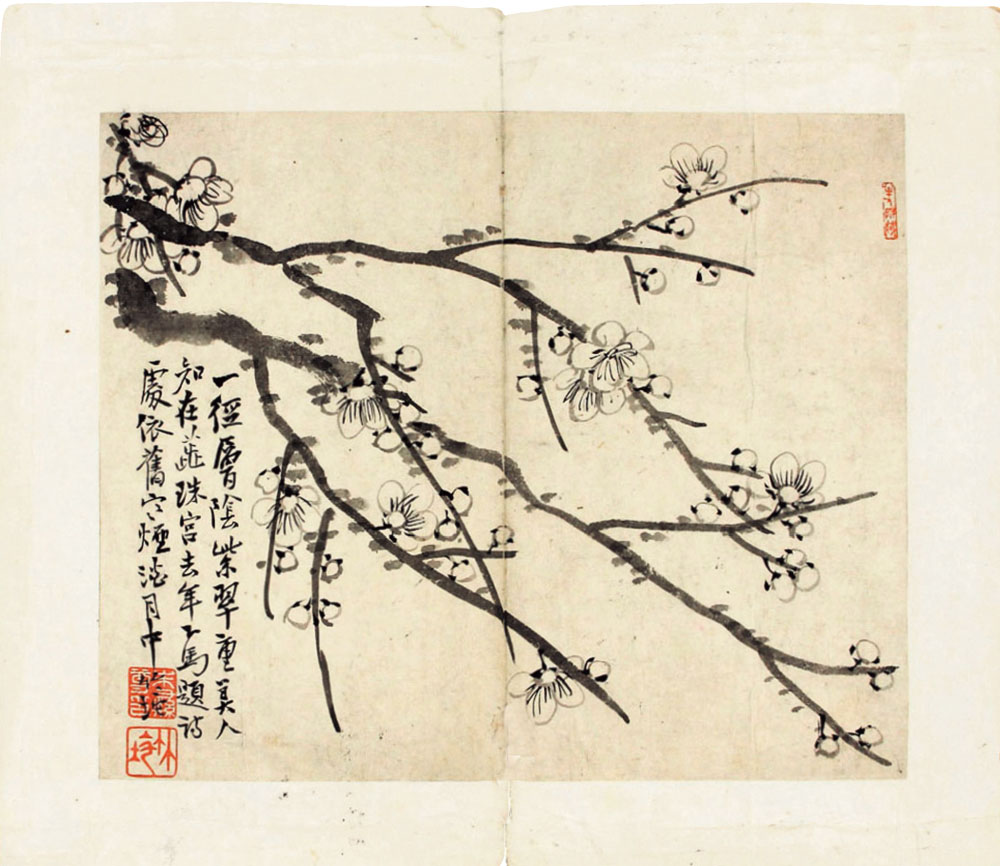 一徑層陰紫翠重美人
知在蕋珠宮去年下馬題詩
處依舊寒煙淡月中